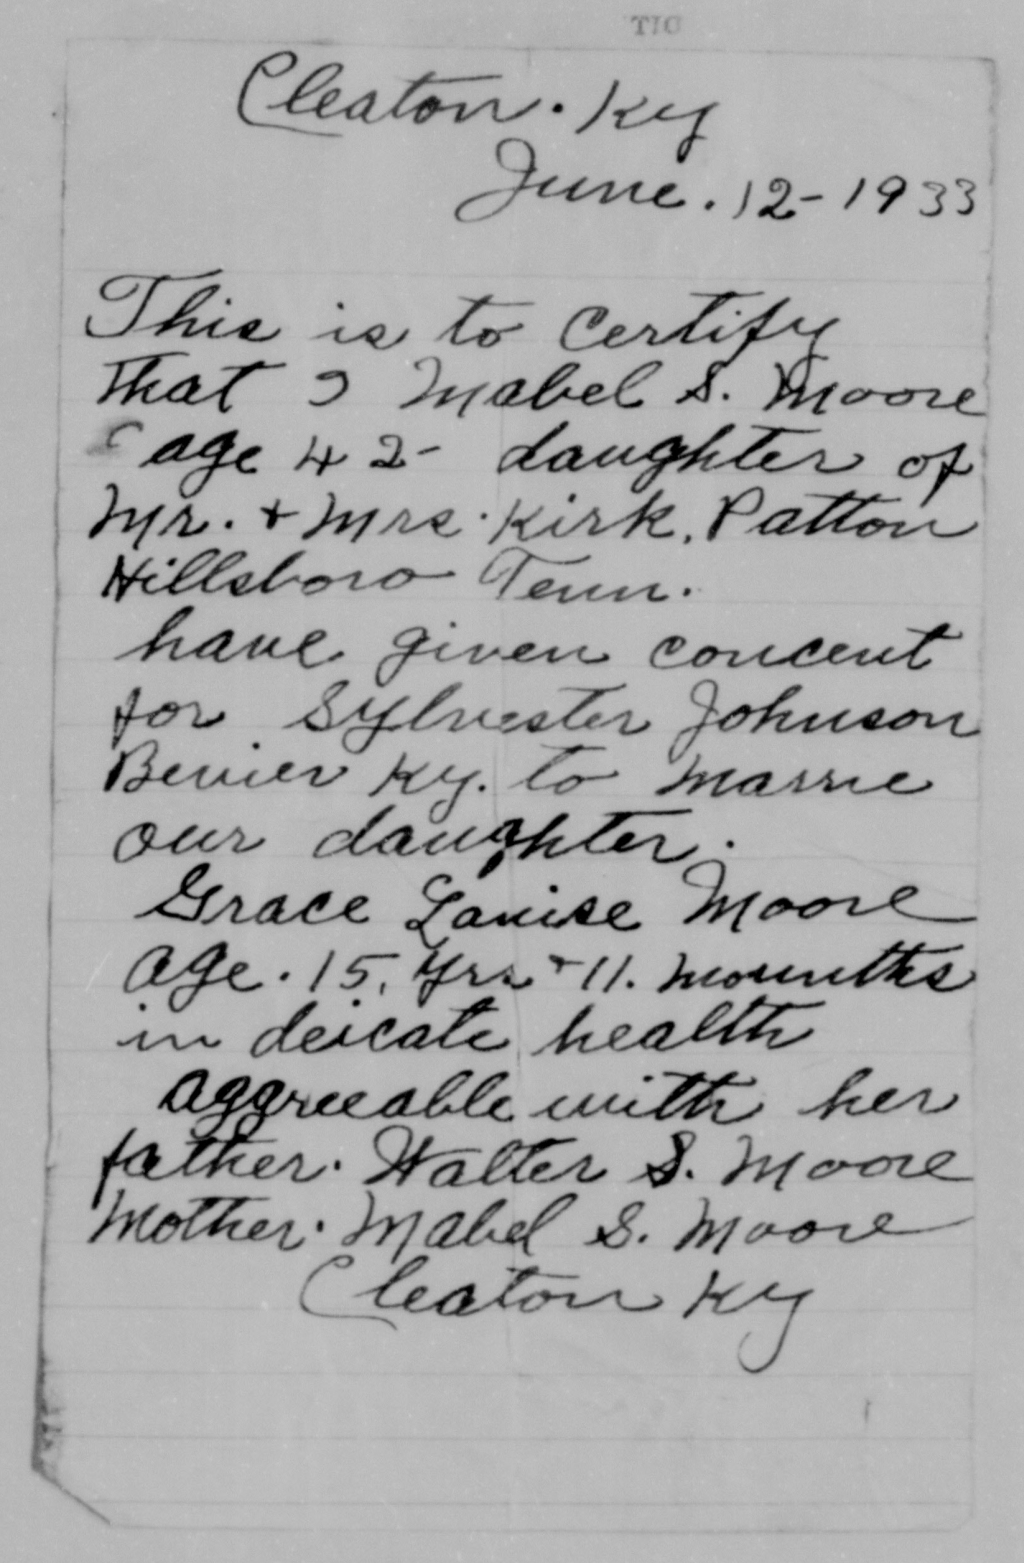 TIC
Cleaton. Ky
June. 12-1933
This is to certify
that I Mabel S. Moore
age 42- daughter of
Mr. + Mrs. Kirk. Patton
Hillsboro Tenn.
have given concent
for Sylvester Johnson
Bevier Ky. to marrie
our daughter.
Grace Louise Moore
age. 15. yrs + 11. mounths
in deicate health
aggreeable with her
father. Walter S. Moore
Mother. Mabel S. Moore
Cleaton Ky